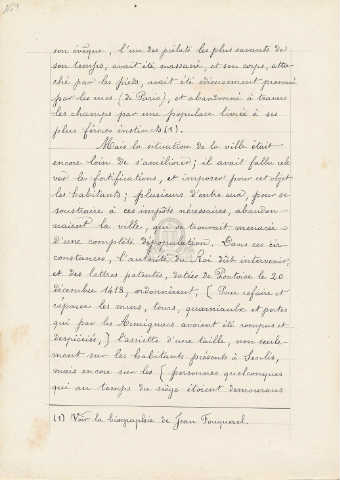 son évêque, l'un des prélats les plus savants de
son temps, avait été massacré, et son corps, atta-
ché par les pieds, avait été odieusement promené
par les rues (de Paris), et abandonné à travers
les champs par une populace livrée à ses
plus féroces instincts (1).
Mais la situation de la ville était
encore loin de s'améliorer ; il avait fallu rele
ver les fortifications, et imposer pour cet objet
les habitants ; plusieurs d'entre eux, pour se
soustraire à ces impôts nécessaires, abandon-
naient la ville, qui se trouvait menacée
d'une complète dépopulation. Dans ces cir-
constances, l'autorité du Roi dût intervenir,
et des lettres patentes, datées de Pontoise le 20
décembre 1418, ordonnèrent, { Pour refaire et
réparer les murs, tours, garniaulx et portes
qui par les Armignacs avoient été rompus et
despiéciés, } l'assiette d'une taille, non seule-
ment sur les habitants présents à Senlis,
mais encore sur les { personnes quelconques
qui au temps du siège étoient demourans
(1) Voir la biographie de Jean Fouquerel.